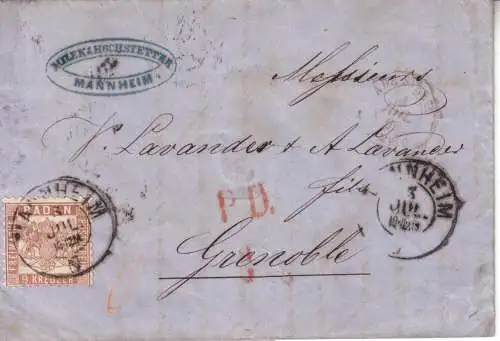 HOCHSTETTER
MANNHEIM
Messieurs
V. Lavander & A Lavander
fils
P.D.
Grenoble
MANNHEIM
3
JUL
MANNHEIM
JUL
BADEN
9 KREUZER